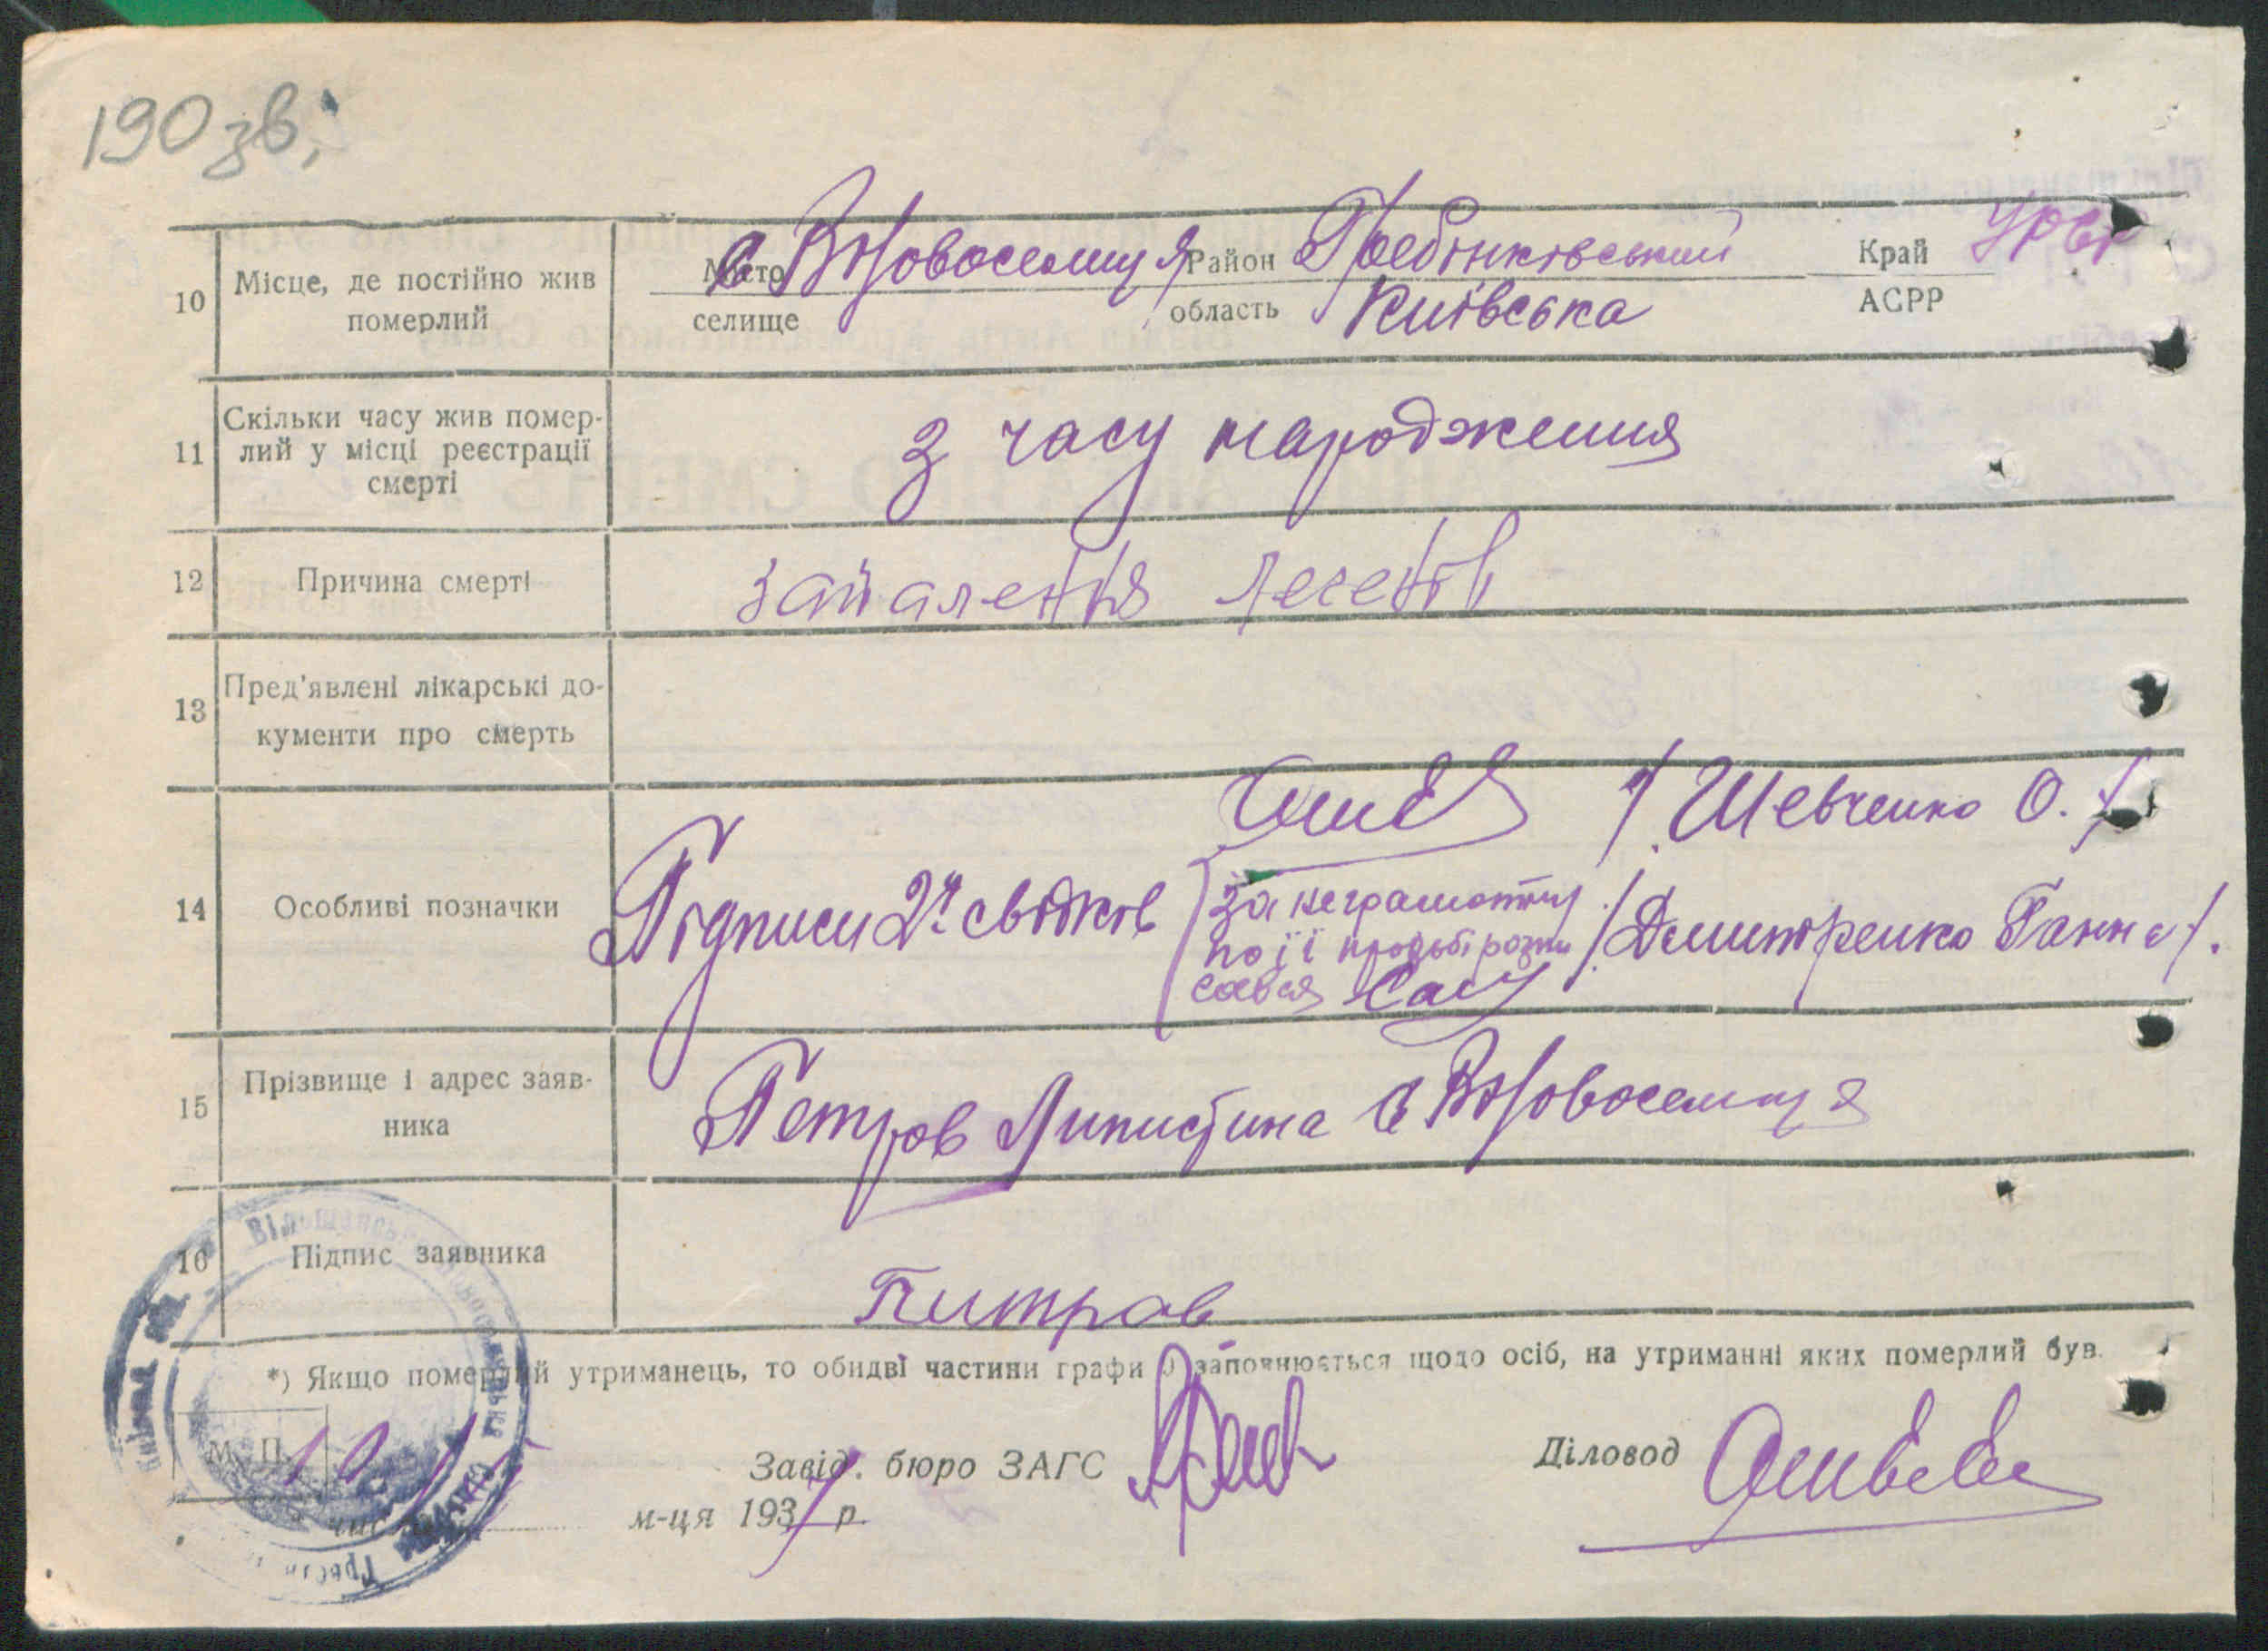 190 зв;
10 Місце, де постійно жив померлий
Місто с. В Новоселиця Район Гребінківський Край УРСР
селище область Київська АСРР
11 Скільки часу жив помер-
лий у місці реєстрації
смерті
З часу народження
12 Причина смерті запалення легенів
13 Пред'явлені лікарські до-
кументи про смерть
/Шевченко О./
14 Особливі позначки Підписи 2х свідків
за неграмотну
по її прозьбі розпи
сався
/Дмитренко Ганна/.
15 Прізвище і адрес заяв-
ника
Петров с В Новоселиця
16 Підпис заявника
Питров
*) Якщо померлий утриманець, то обидві частини графи заповнюється щодо осіб, на утриманні яких померлий був.
М. П.
Завід. бюро ЗАГС
Діловод
м-ця 1937 р.